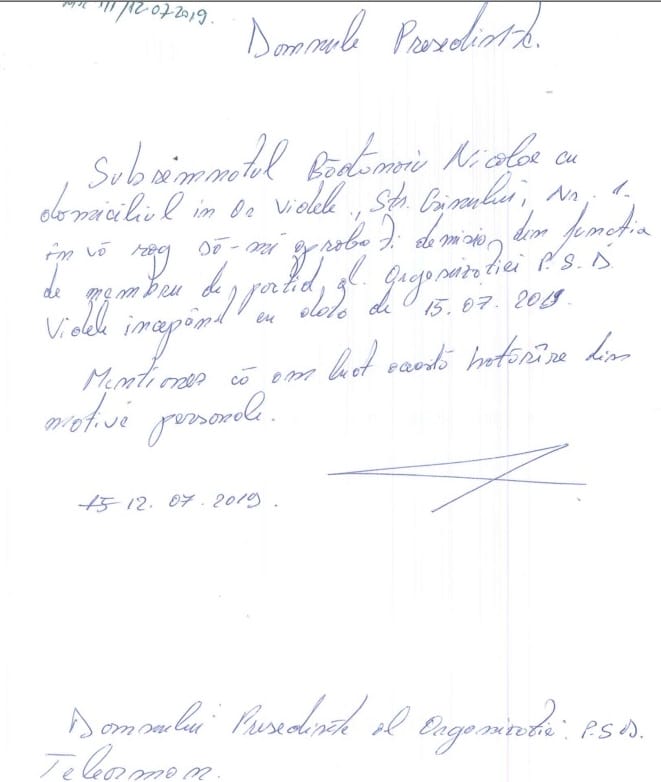 111/12.07.2019.
Domnule Presedinte.
Subsemnatul Bădănoiu Nicolae cu
domiciliul in Or Videle, Str. Crinului, Nr. 1.
în vă rog să-mi aprobați demisia din functia
de membru de partid al Organizatiei P.S.D
Videle incepând cu data de 15.07.2019.
Mentionez că am luat această hotărîre din
motive personale.
15 12.07.2019.
Domnului Presedinte al Organizatiei P.S.D.
Teleorman.